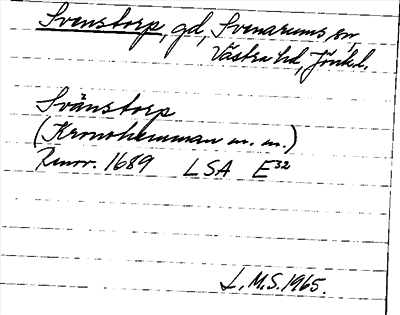 Svenstorp, gd, Svenarums sn,
Västra hd, Jönk.l.
Svänstorp
(Kronohemman m. m.)
Renov. 1689 LSA E32
L.M.S. 1965.